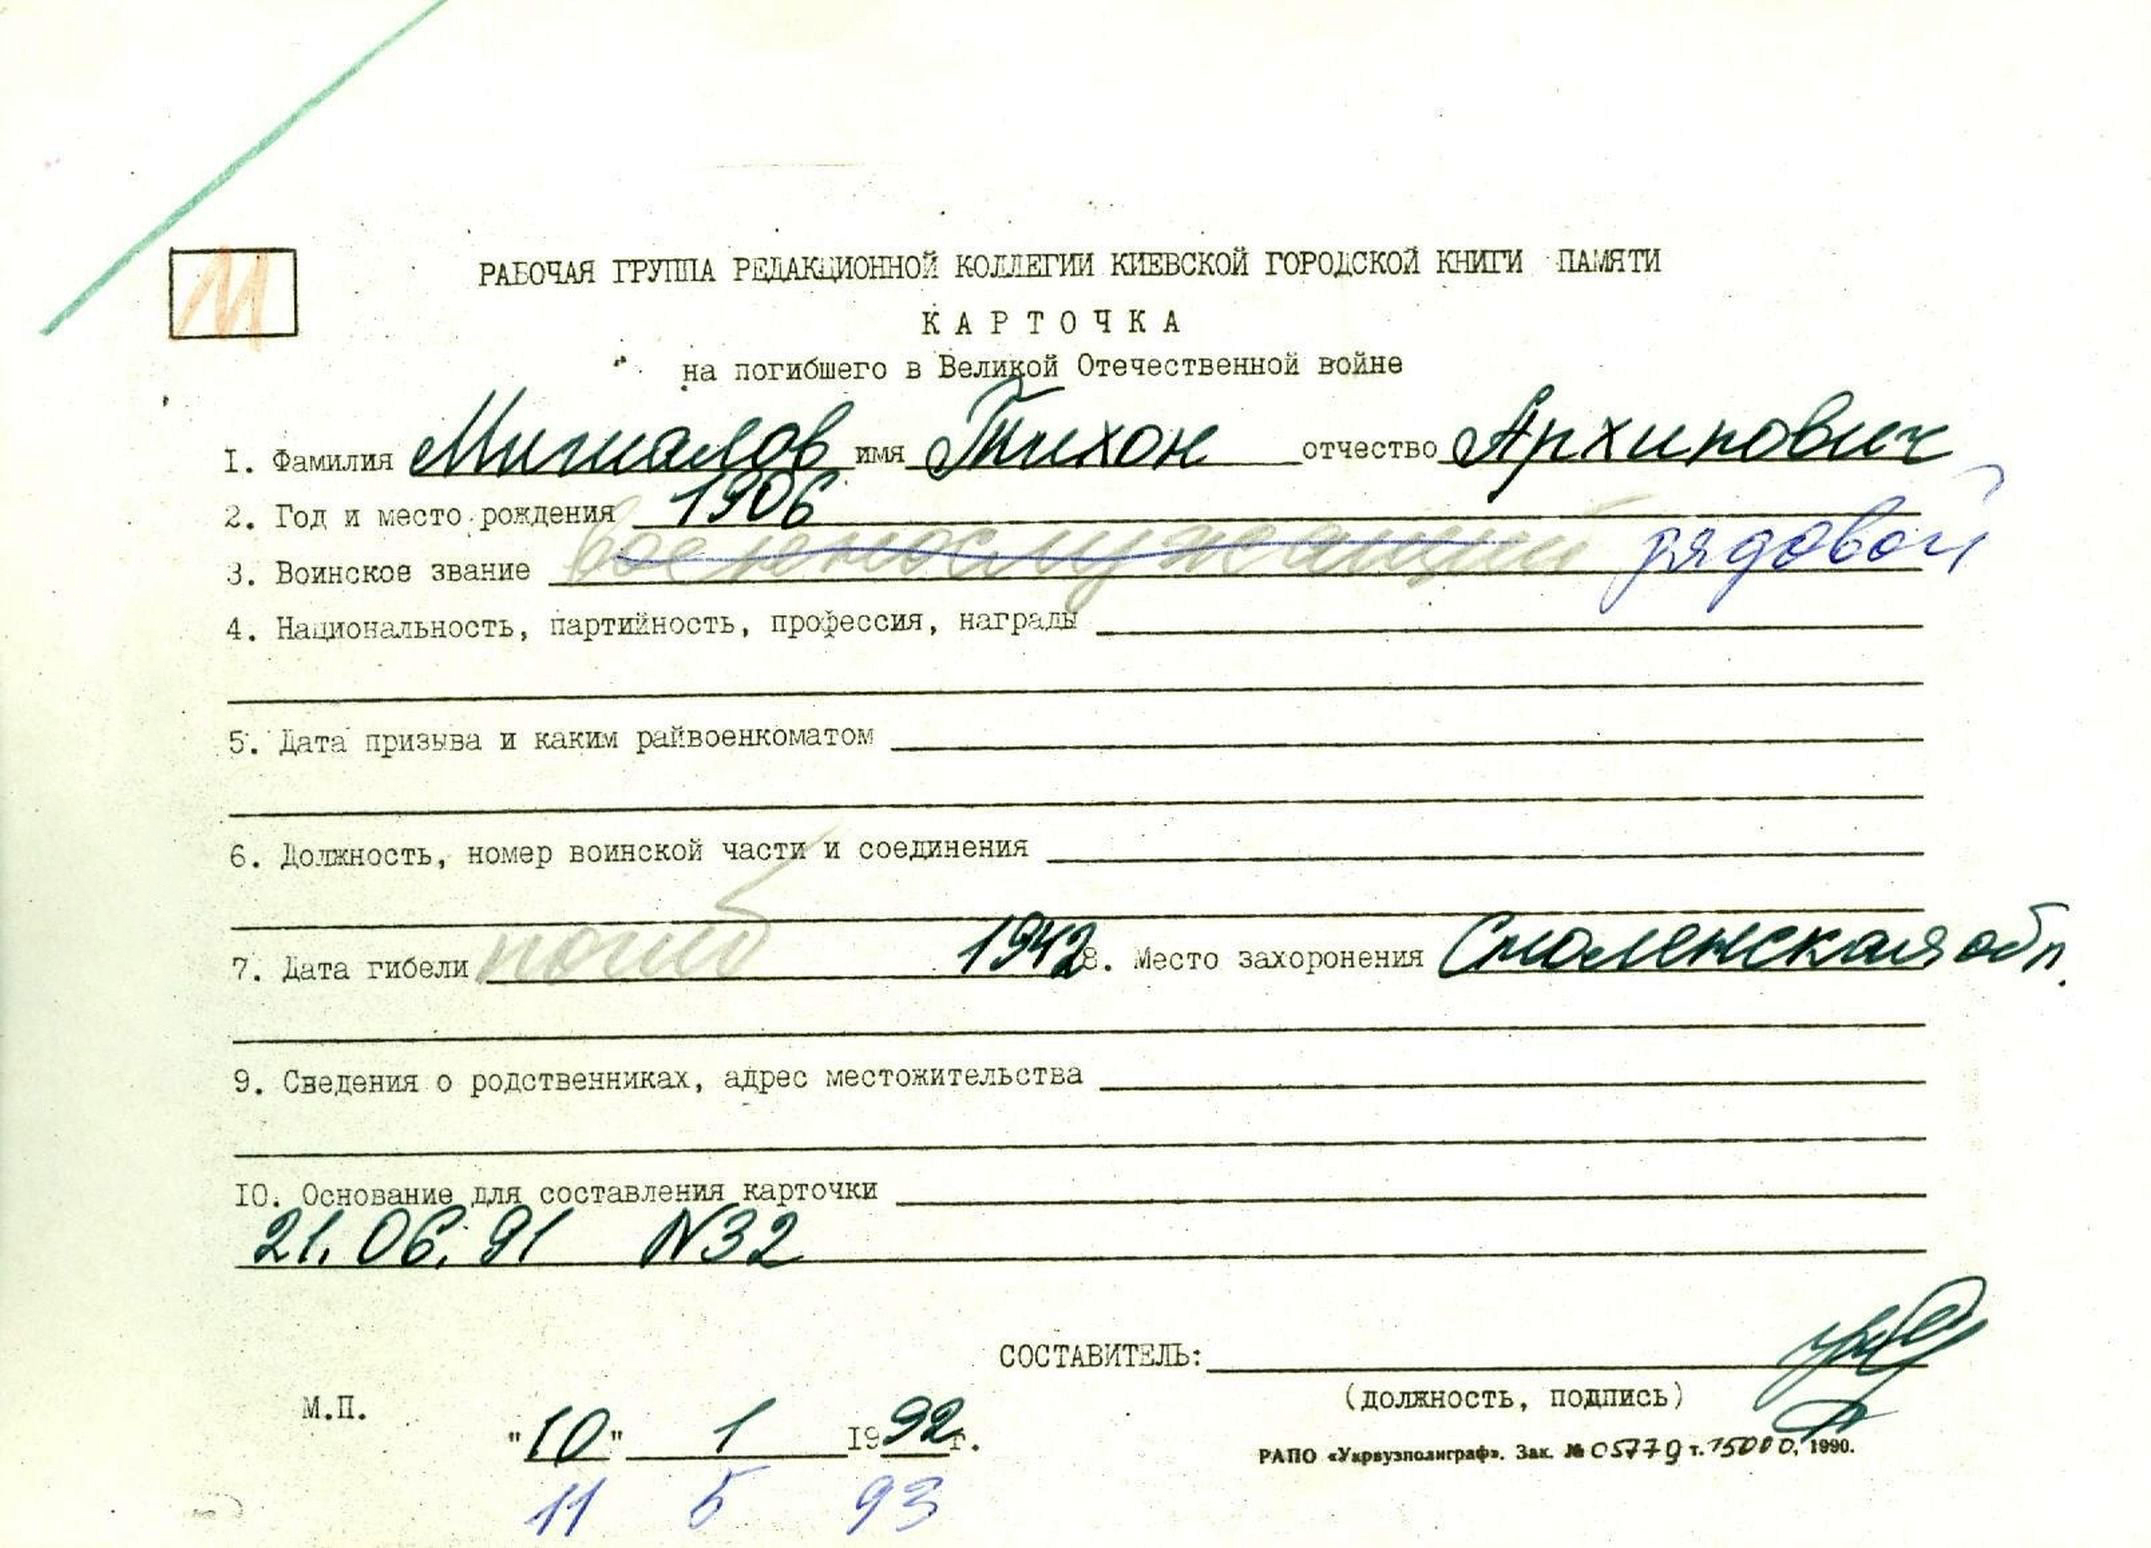 М
РАБОЧАЯ ГРУППА РЕДАКЦИОННОЙ КОЛЛЕГИИ КИЕВСКОЙ ГОРОДСКОЙ КНИГИ ПАМЯТИ
КАРТОЧКА
на погибшего в Великой Отечественной войне
I. Фамилия имя Тихон отчество Архипович
2. Год и место рождения 1906
3. Воинское звание военнослужащий рядовой
4. Национальность, партийность, профессия, награды
5. Дата призыва и каким райвоенкоматом
6. Должность, номер воинской части и соединения
7. Дата гибели погиб 1942 8. Место захоронения Смоленская обл.
9. Сведения о родственниках, адрес местожительства
IO. Основание для составления карточки
21.06.91 N32
СОСТАВИТЕЛЬ:
(должность, подпись)
М.П.
"10" 1 1992г.
РАПО «Укрвузполиграф». Зак. № 05779 т. 15000, 1990.
11 5 93